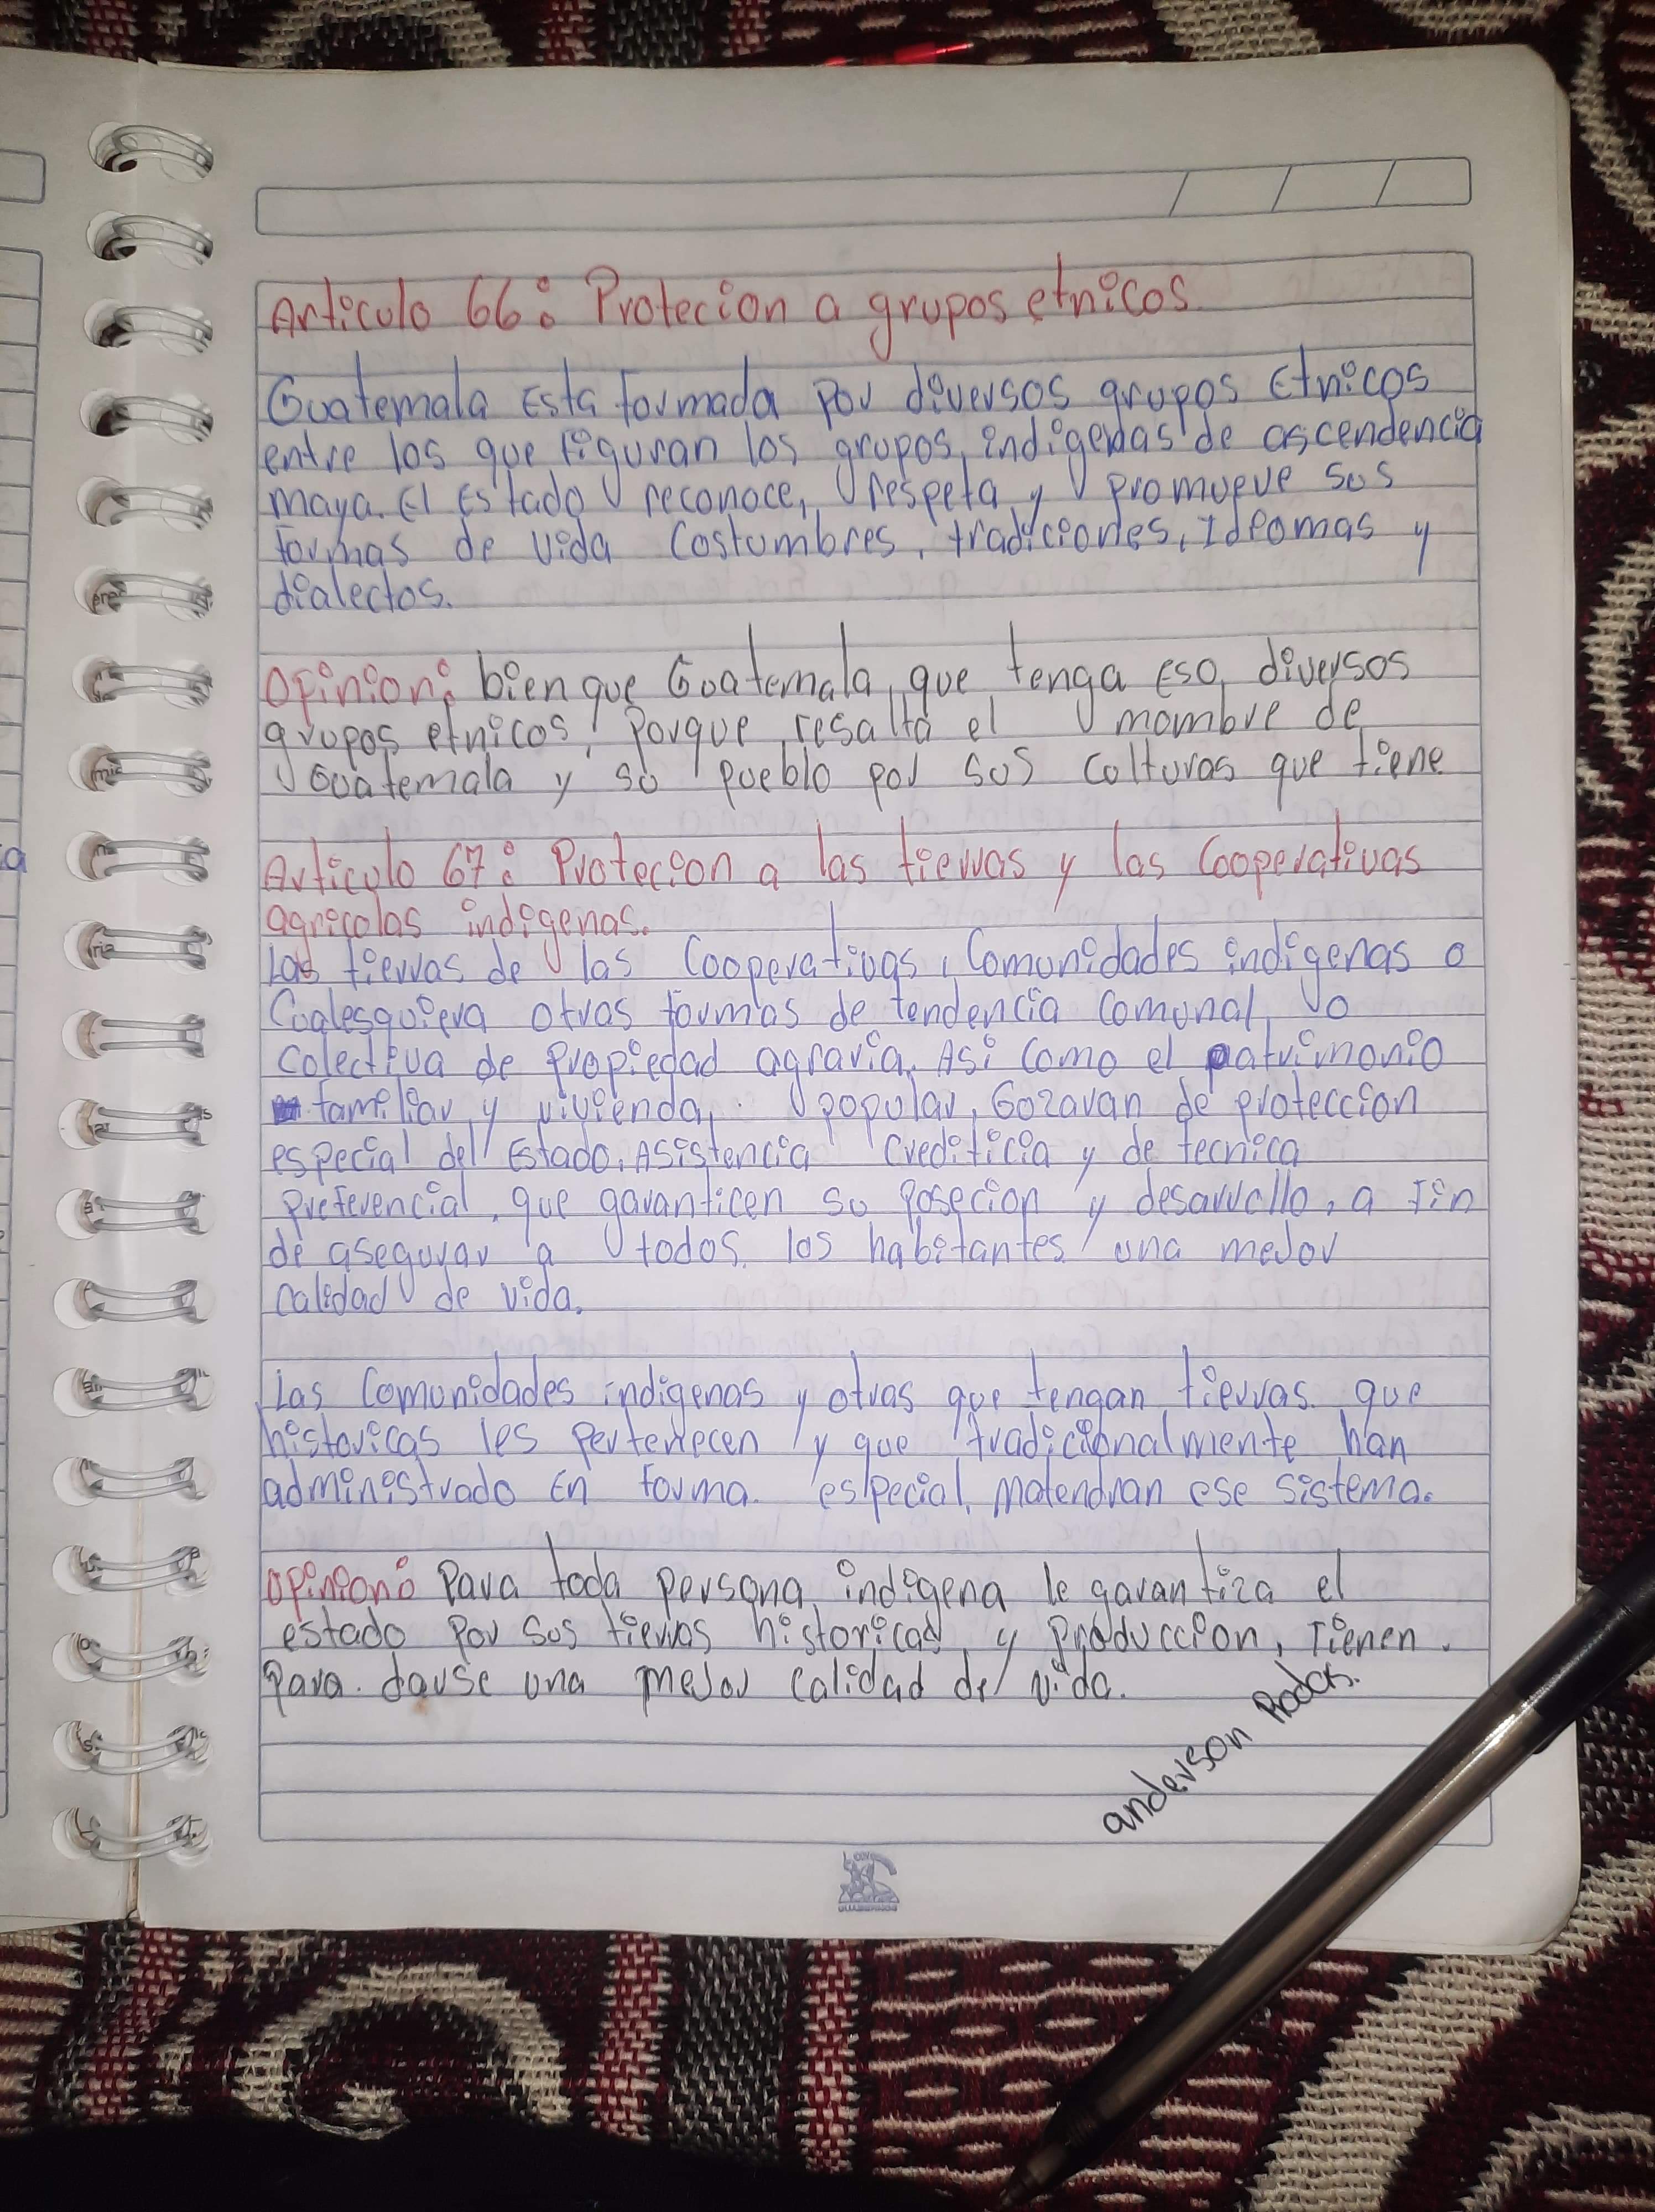 Articulo 66: Protecion a grupos etnicos.
Guatemala Esta formada por diversos grupos Etnicos
entre los que figuran los grupos indigenas de ascendencia
maya. El Estado reconoce, respeta y promueve sus
formas de vida Costumbres, tradiciones, Idiomas y
dialectos.
Opinion: bien que Guatemala, que tenga Eso, diversos
grupos etnicos, Porque resalta el mombre de
Guatemala y su pueblo por sus culturas que tiene
Articulo 67: Protecion a las tierras y las Cooperativas
agricolas indigenas.
Las tierras de las Cooperativas, Comunidades indigenas o
Cualesquiera otras formas de tendencia Comunal o
colectiva de propiedad agraria. Asi Como el patrimonio
familiar y vivienda, popular, Gozaran de proteccion
especial del Estado. Asistencia Crediticia y de tecnica
preferencial, que garanticen su posecion y desarrollo, a fin
de asegurar a todos los habitantes una mejor
calidad de vida.
Las Comunidades indigenas y otras que tengan tierras que
historicas les pertenecen y que tradicionalmente han
administrado En forma especial, matendran ese sistema.
Opinion: Para toda persona indigena le garantiza el
estado Por sus tierras historicas y Produccion, Tienen.
Para. darse una mejor calidad de vida.
anderson Rodas.